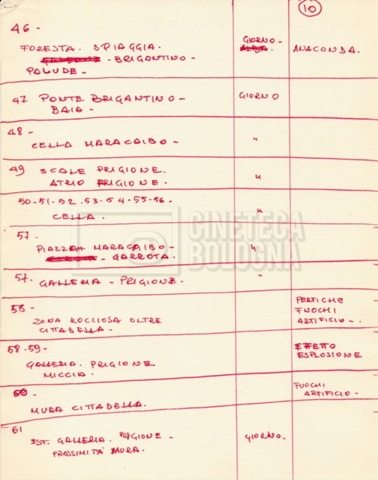 10
46 -
FORESTA. SPIAGGIA. GIORNO - ANACONDA.
- BRIGANTINO -
PALUDE -
47 PONTE BRIGANTINO - GIORNO
BAIA -
48 -
CELLA MARACAIBO - "
49 SCALE PRIGIONE.
ATRIO PRIGIONE. "
50-51-52.53-54-55-56-
CELLA. "
57
PIAZZA MARACAIBO - "
- GARROTA.
57. GALLERIA - PRIGIONE. "
58 - PERTICHE
FUOCHI
ZONA ROCCIOSA OLTRE ARTIFICIO -
CITTADELLA -
58-59- EFFETTO
ESPLOSIONE
GALLERIA. PRIGIONE
MICCIA.
60 - FUOCHI
ARTIFICIO -
MURA CITTADELLA.
61
EST. GALLERIA. PRIGIONE - GIORNO -
PROSSIMITÀ MURA.
CINETECA
BOLOGNA